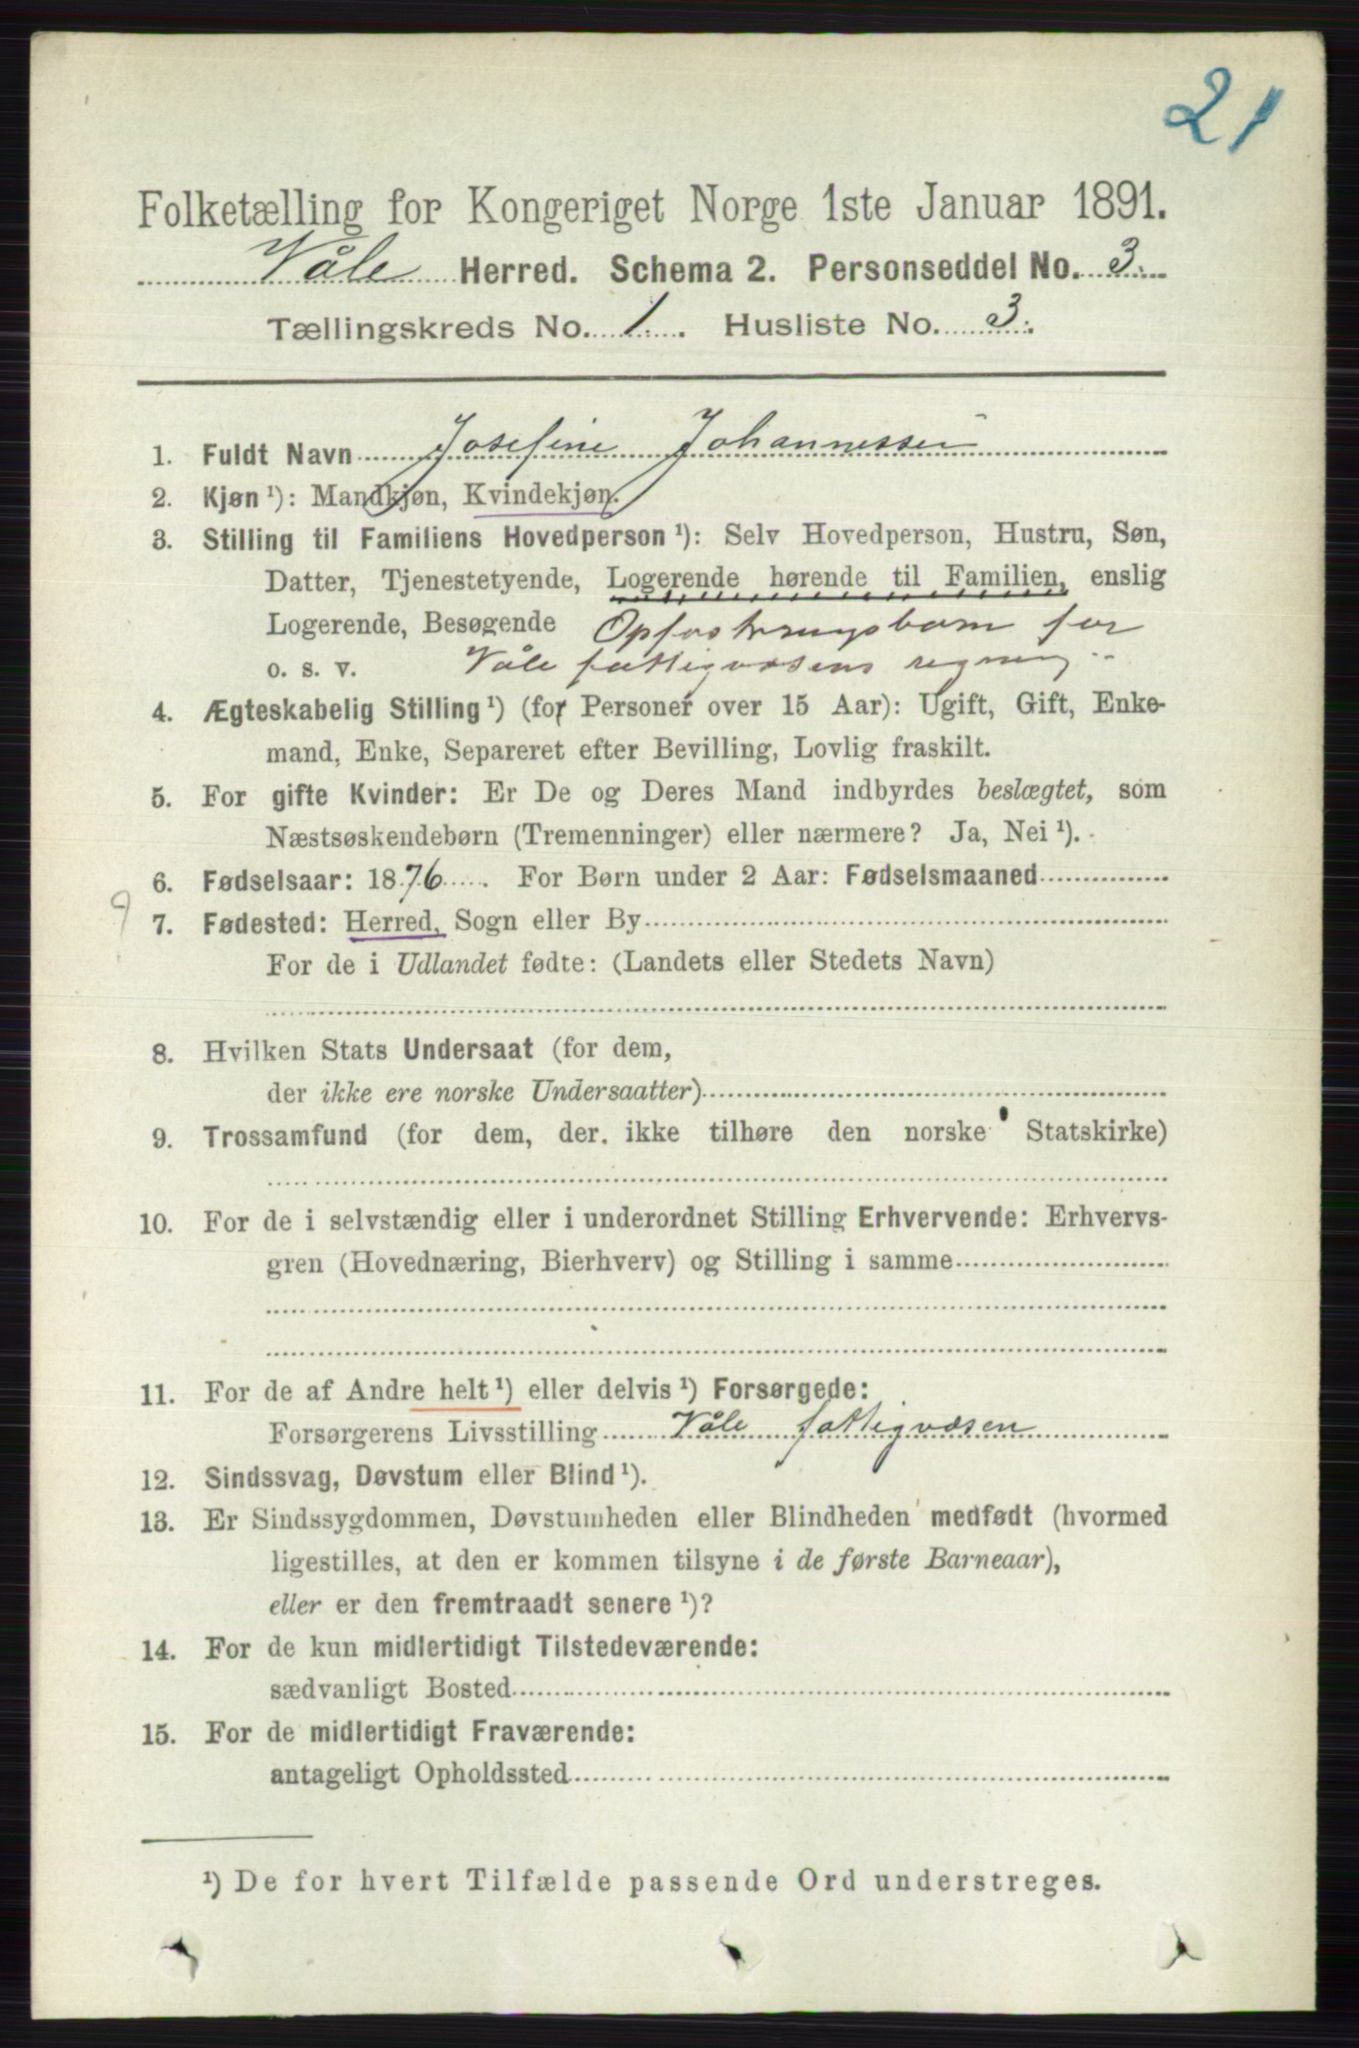 21
Folketælling for Kongeriget Norge 1ste Januar 1891.
Våle Herred. Schema 2. Personseddel No. 3.
Tællingskreds No. 1. Husliste No. 3.
1. Fuldt Navn Josefine Johannessen
2. Kjøn ¹): Mandkjøn, Kvindekjøn.
3. Stilling til Familiens Hovedperson ¹): Selv Hovedperson, Hustru, Søn,
Datter, Tjenestetyende, Logerende hørende til Familien, enslig
Logerende, Besøgende Opfostringsbarn for
o. s. v. Våle fattigvæsens regning
4. Ægteskabelig Stilling ¹) (for Personer over 15 Aar): Ugift, Gift, Enke-
mand, Enke, Separeret efter Bevilling, Lovlig fraskilt.
5. For gifte Kvinder: Er De og Deres Mand indbyrdes beslægtet, som
Næstsøskendebørn (Tremenninger) eller nærmere? Ja, Nei ¹).
6. Fødselsaar: 1876. For Børn under 2 Aar: Fødselsmaaned
9
7. Fødested: Herred, Sogn eller By
For de i Udlandet fødte: (Landets eller Stedets Navn)
8. Hvilken Stats Undersaat (for dem,
der ikke ere norske Undersaatter)
9. Trossamfund (for dem, der. ikke tilhøre den norske Statskirke)
10. For de i selvstændig eller i underordnet Stilling Erhvervende: Erhvervs-
gren (Hovednæring, Bierhverv) og Stilling i samme
11. For de af Andre helt ¹) eller delvis ¹) Forsørgede:
Forsørgerens Livsstilling Våle fattigvæsen
12. Sindssvag, Døvstum eller Blind ¹).
13. Er Sindssygdommen, Døvstumheden eller Blindheden medfødt (hvormed
ligestilles, at den er kommen tilsyne i de første Barneaar),
eller er den fremtraadt senere ¹)?
14. For de kun midlertidigt Tilstedeværende:
sædvanligt Bosted
15. For de midlertidigt Fraværende:
antageligt Opholdssted
¹) De for hvert Tilfælde passende Ord understreges.